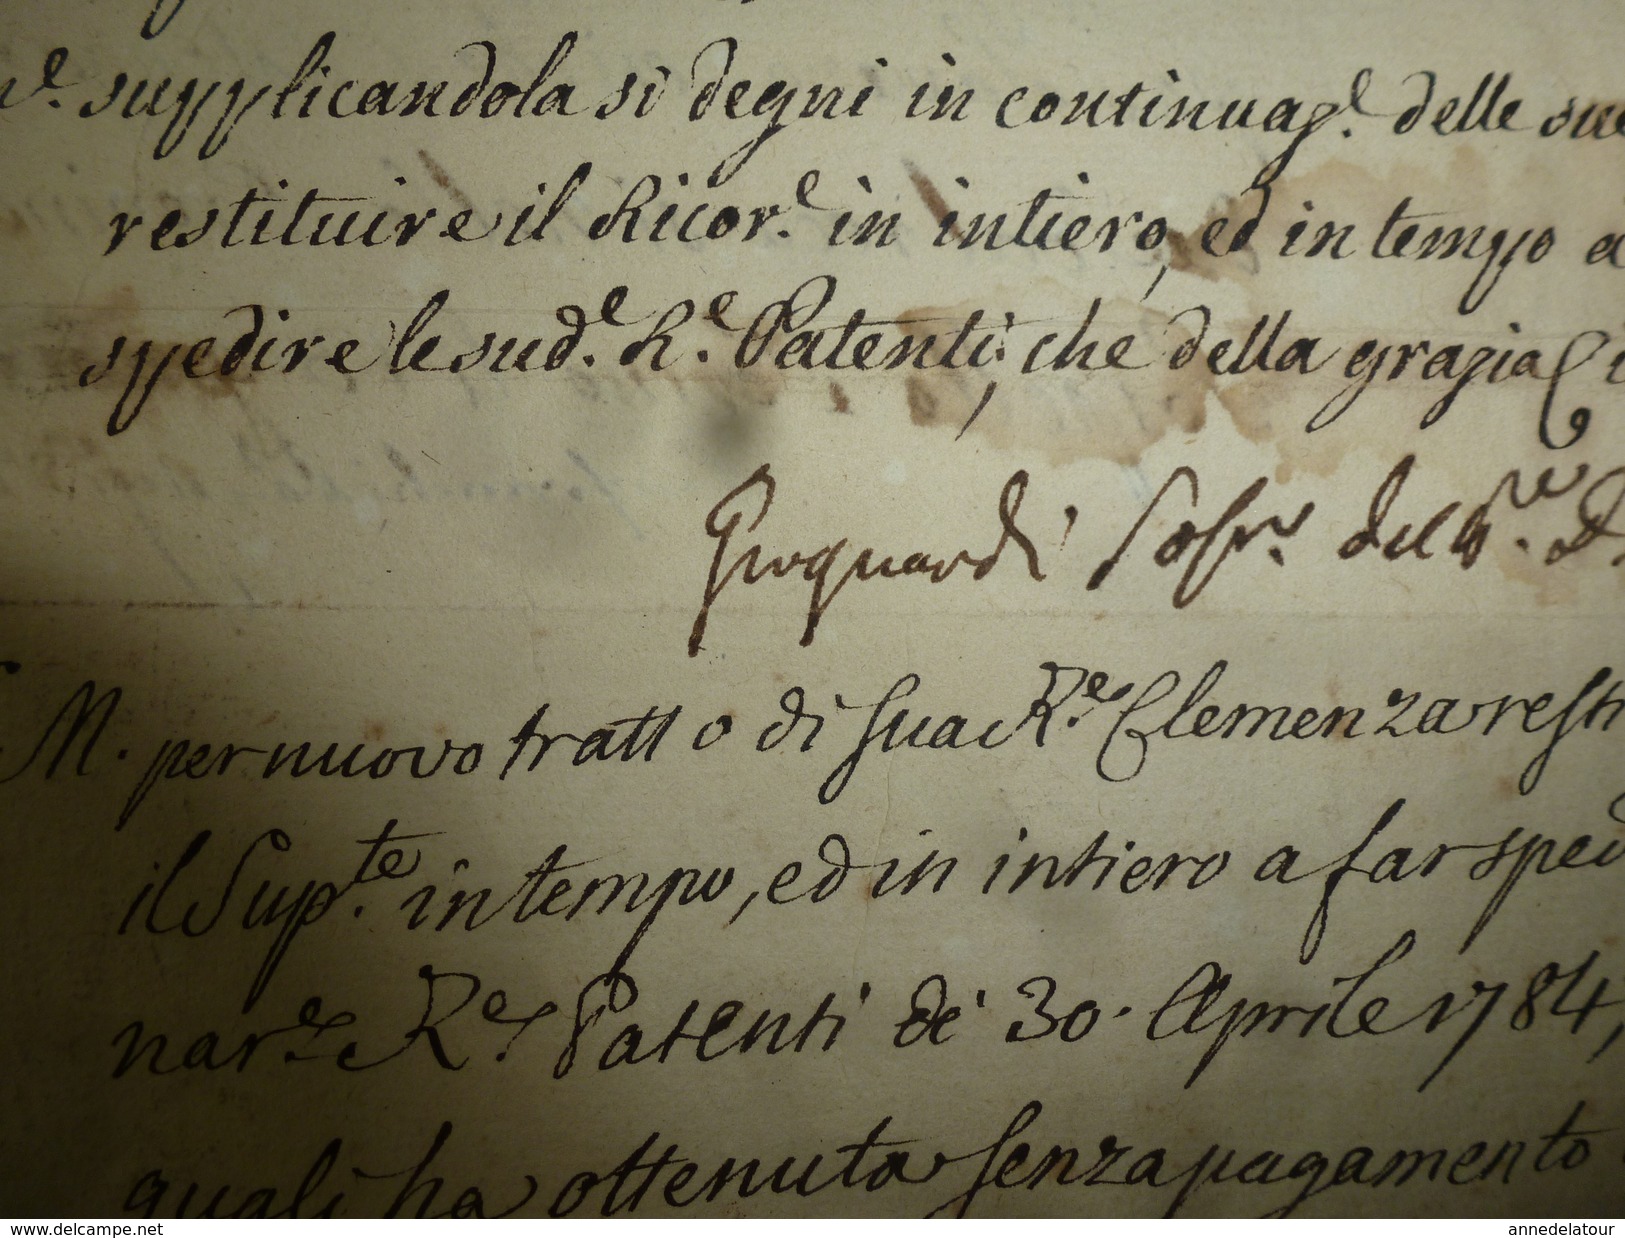 supplicandola si degni in continuaz.e delle sue
restituire il Ricor.e in intiero, ed in tempo a
spedire le sud.e R.e Patenti, che della grazia
del
M. per nuovo tratto di sua R.e Clemenza resti
il Sup.te in tempo, ed in intiero a far sped
nar.e R.e Patenti de' 30. Aprile 1784,
quali ha ottenuta senza pagamento
www.delcampe.net
annedelatour